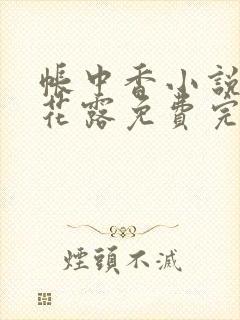 帳中香小說
花露免費完
煙頭不滅